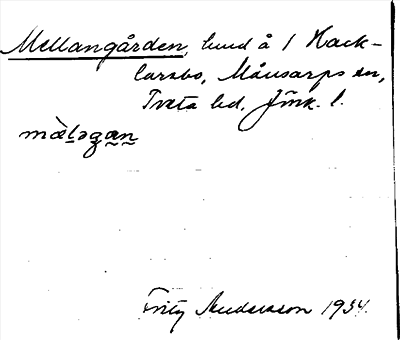 Mellangården, lund å 1 Hack-
larebo, Månsarps sn,
Tveta hd, Jönk. l.
mæ̀ləgan
Fritz Andersson 1934.